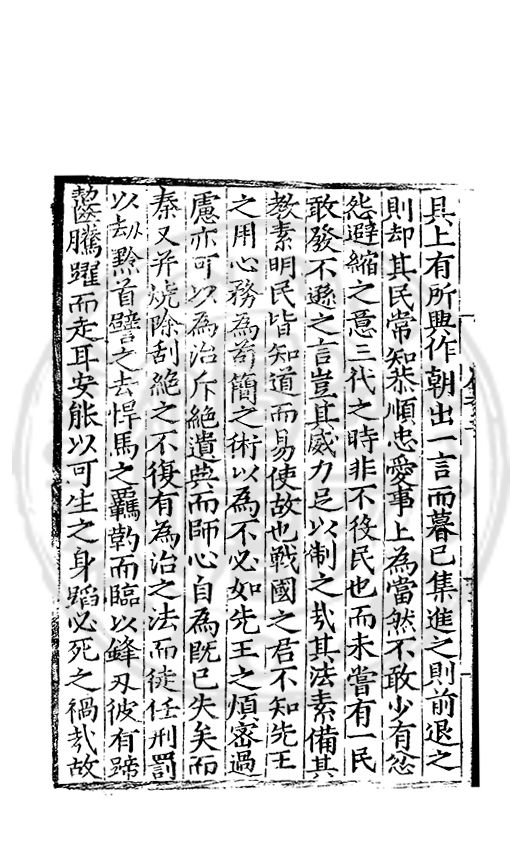 具上有所興作朝出一言而暮已集進之則前退之
則却其民常知恭順忠愛事上為當然不敢少有忿
怨避縮之意三代之時非不役民也而未嘗有一民
敢發不遜之言豈其威力足以制之㢤其法素備其
教素明民皆知道而易使故也戰國之君不知先王
之用心務為苟簡之術以為不必如先王之煩密過
慮亦可以為治斥絶遺典而師心自為旣已失矣而
秦又并燒除刮絶之不復有為治之法而徒任刑罰
以劫黔首譬之去悍馬之羈靮而臨以鋒刃彼有蹄
齧騰躍而走耳安能以可生之身蹈必死之禍㢤故